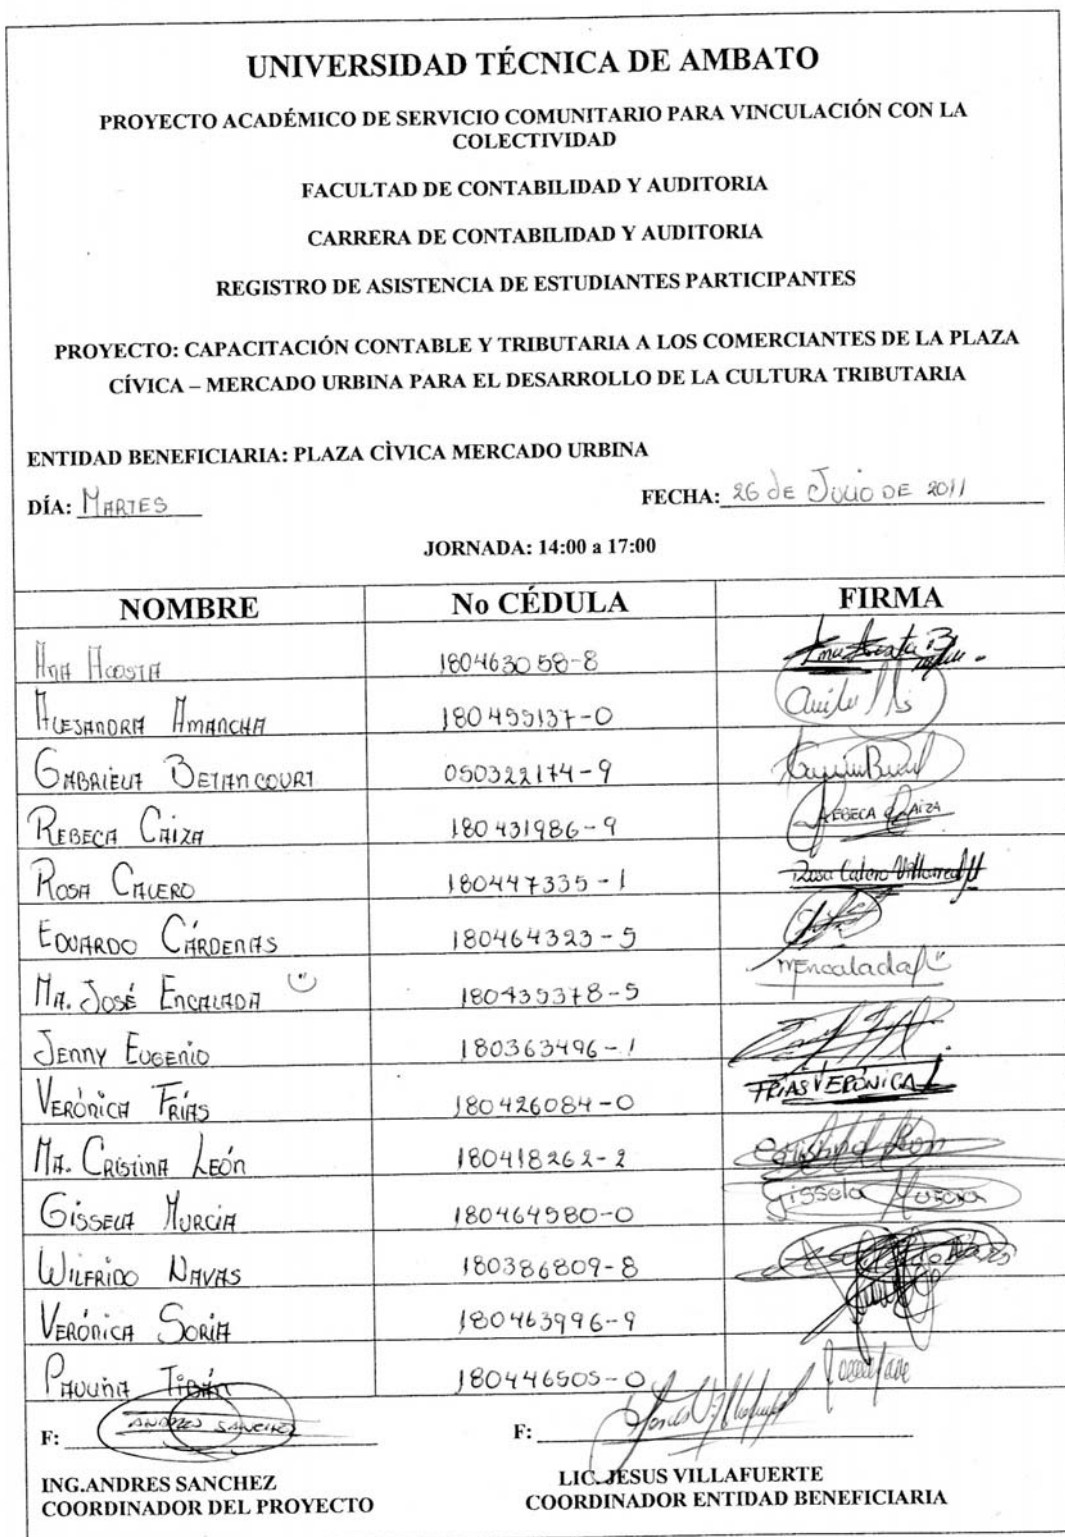 UNIVERSIDAD TÉCNICA DE AMBATO
PROYECTO ACADÉMICO DE SERVICIO COMUNITARIO PARA VINCULACIÓN CON LA
COLECTIVIDAD
FACULTAD DE CONTABILIDAD Y AUDITORIA
CARRERA DE CONTABILIDAD Y AUDITORIA
REGISTRO DE ASISTENCIA DE ESTUDIANTES PARTICIPANTES
PROYECTO: CAPACITACIÓN CONTABLE Y TRIBUTARIA A LOS COMERCIANTES DE LA PLAZA
CÍVICA – MERCADO URBINA PARA EL DESARROLLO DE LA CULTURA TRIBUTARIA
ENTIDAD BENEFICIARIA: PLAZA CÌVICA MERCADO URBINA
DÍA: MARTES FECHA: 26 de JULIO DE 2011
JORNADA: 14:00 a 17:00
NOMBRE No CÉDULA FIRMA
ANA ACOSTA 180463058-8
ALEJANDRA AMANCHA 180455137-0
GABRIELA BETANCOURT 050322174-9
REBECA CAIZA 180431986-9 REBECA CAIZA
ROSA CALERO 180447335-1 Rosa Calero Villarreal
EDUARDO CÁRDENAS 180464323-5
MA. JOSÉ ENCALADA 180435378-5 MEncalada
JENNY EUGENIO 180363496-1
VERÓNICA FRÍAS 180426084-0 FRÍAS VERÓNICA
MA. CRISTINA LEÓN 180418262-2 Cristina León
GISSELA MURCIA 180464980-0 Gissela Murcia
WILFRIDO NAVAS 180386809-8
VERÓNICA SORIA 180463996-9
PAULINA TIBÁN 180446505-0
F: ANDRES SANCHEZ F: Jesús Villafuerte
ING.ANDRES SANCHEZ LIC. JESUS VILLAFUERTE
COORDINADOR DEL PROYECTO COORDINADOR ENTIDAD BENEFICIARIA